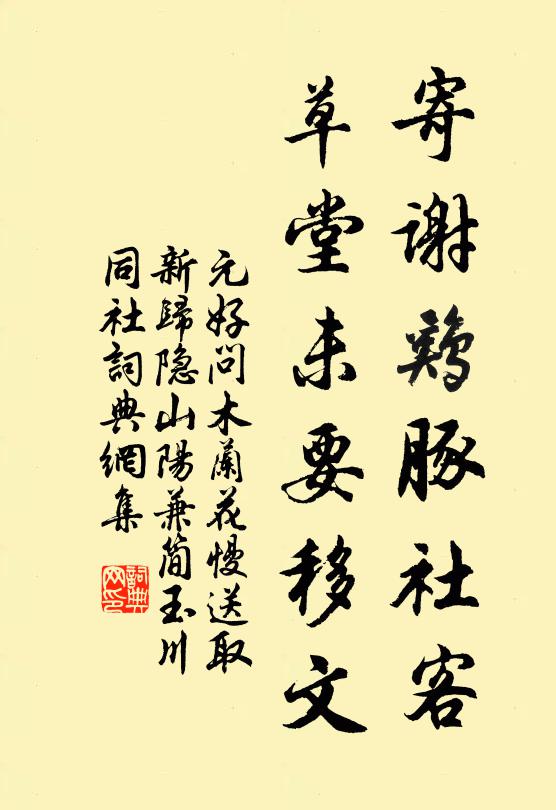 寄谢鷄豚社客
草堂未要移文
元好问木蘭花慢送取
新歸隐山陽兼简玉川
同社詞典網集
詞典网印